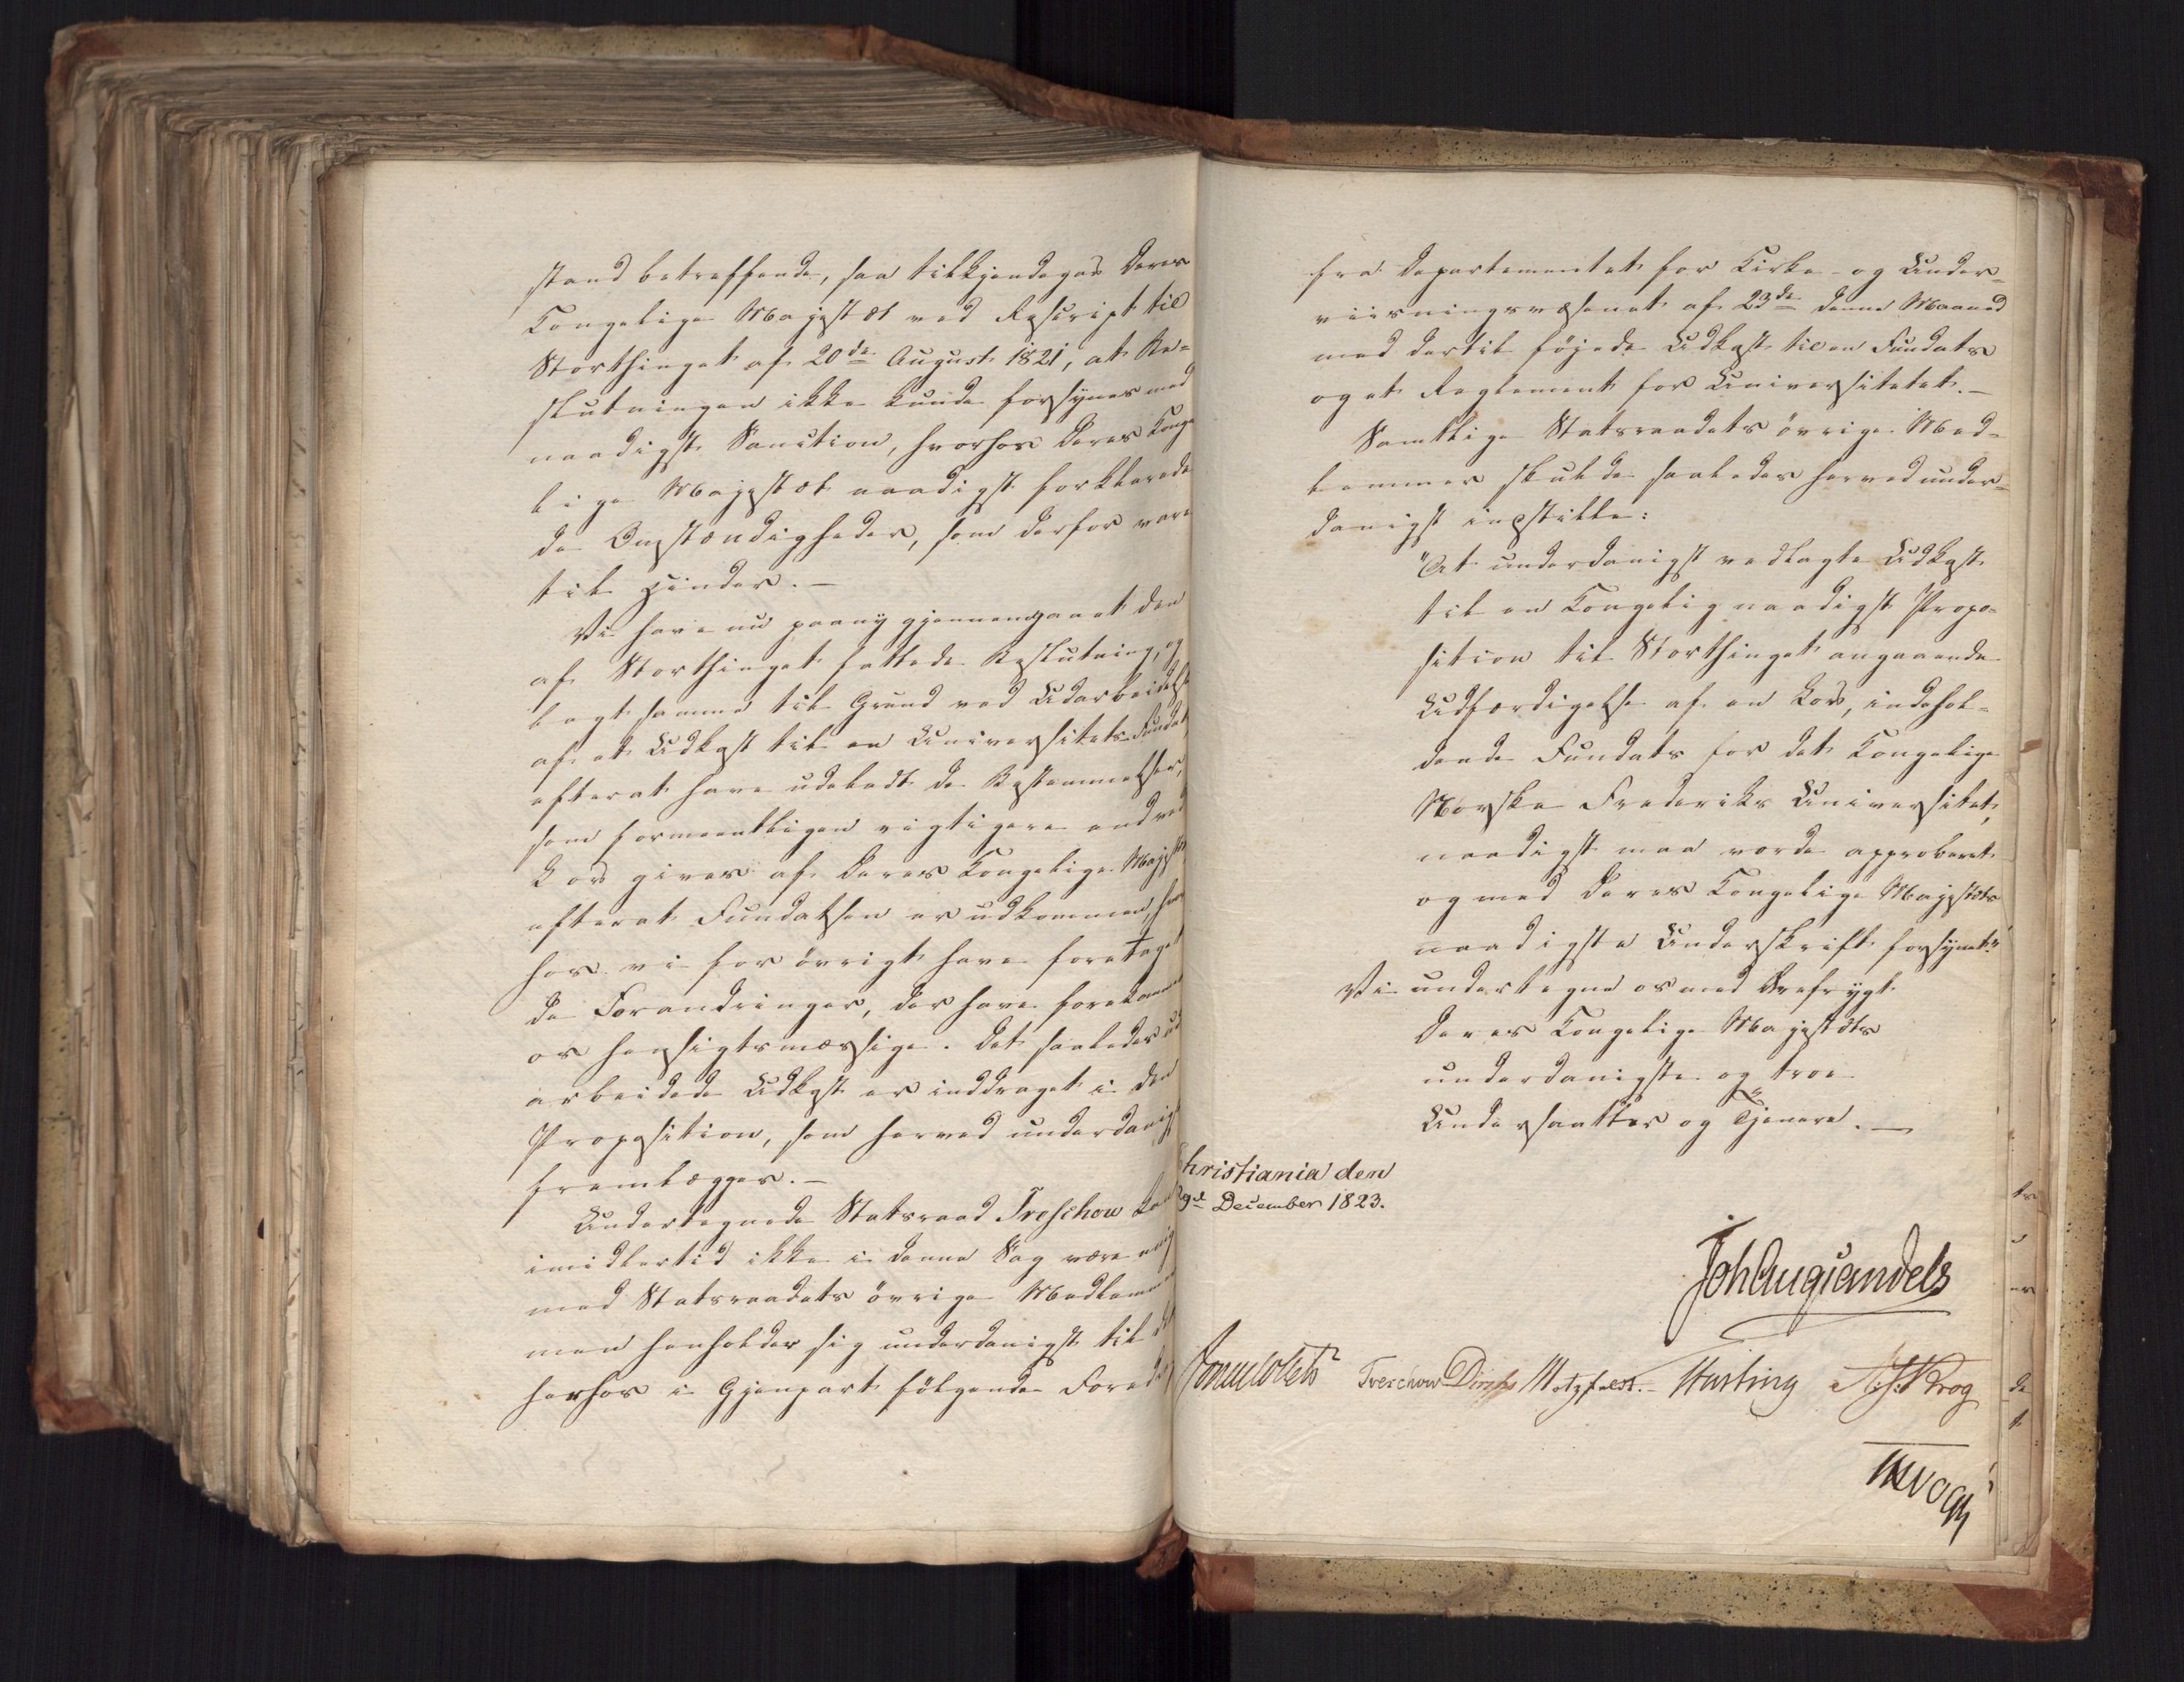 stand betreffende, saa tilkjendegav Deres
Kongelige Majestæt ved Rescript til
Storthinget af 20de August 1821, at Be-
slutningen ikke kunde forsynes med
naadigst Sanction, hvorhos Deres Konge
lige Majestæt naadigst forklarede
de Omstændigheder, som derfor vare
til Hinder. -
Vi have nu paany gjennemgaaet den
af Storthinget fattede Beslutning, og
lagt samme til Grund ved Udarbeidelse
af et Udkast til en Universitets-Fundats
efterat have udeladt de Bestemmelser,
som formeentligen rigtigere end ved
Lov gives af Deres Kongelige Majestæt
efterat Fundatsen er udkommen, hvor
hos vi for övrigt have foretaget
de Forandringer, der have forekommet
os hensigtsmæssige. Det saaledes ud
arbeidede Udkast er inddraget i den
Proposition, som herved underdanigst
fremlægges. -
Undertegnede Statsraad Treschow kan
imidlertid ikke i denne Sag være enig
med Statsraadets övrige Medlemmer
men henholder sig underdanigst til det
herhos i Gjenpart fölgende Foredrag
fra Departementet for Kirke- og Under-
viisningsvæsenet af 23de denne Maaned
med dertil föjede Udkast til en Fundats
og et Reglement for Universitetet. -
Samtlige Statsraadets övrige Med-
lemmer skulde saaledes herved under-
danigst indstille:
"At underdanigst vedlagte Udkast
til en Kongelig naadigst Propo-
sition til Storthinget angaaende
Udfærdigelse af en Lov, indehol-
dende Fundats for det Kongelige
Norske Frederiks Universitet,
naadigst maa vorde approberet
og med Deres Kongelige Majestæts
naadigste Underskrift forsynet."
Vi undertegne os med Ærefrygt
Deres Kongelige Majestæts
underdanigste og troe
Undersaatter og Tjenere. -
Christiania den
29d December 1823.
JohAugSandels
Jonas Collett Treschow Diriks Motzfeldt. - Hasting A. S. Krog
JHVogt